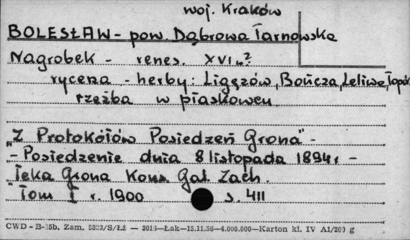 woj. Kraków
BOLESŁAW - pow. Dąbrowa Tarnowska
Nagrobek - renes. XVI w?
rycerza - herby: Ligęzów, Bończa, Leliwa, Topór
rzeźba w piaskowcu
"Z Protokółów Posiedzeń Grona" -
- Posiedzenie dnia 8 listopada 1894 r -
Teka Grona Kons. Gal. Zach.
Tom I r. 1900 s. 411
CWD - B-15b. Zam. /S/Łż — Łak—15.11.56—4.000.000—Karton kl. IV A1/200 g